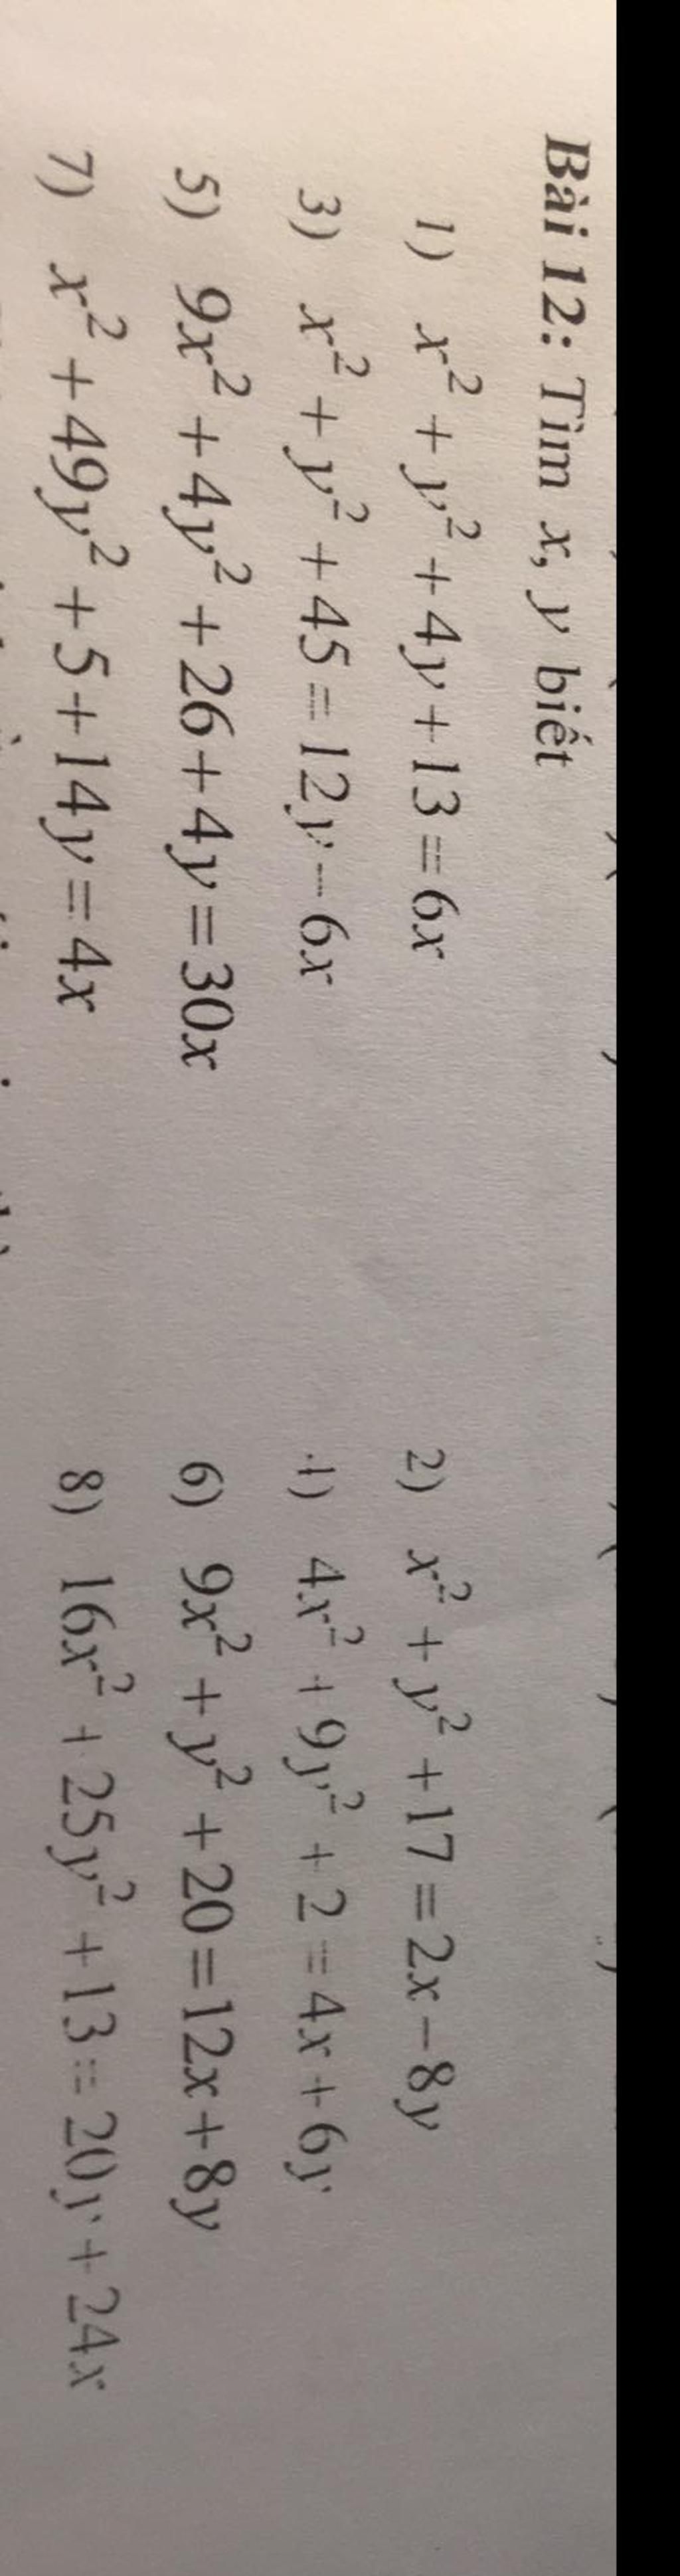 Bài 12: Tìm x, y biết
1) x² + y² + 4y + 13 = 6x 2) x² + y² + 17 = 2x − 8y
3) x² + y² + 45 = 12y − 6x 4) 4x² + 9y² + 2 = 4x + 6y
5) 9x² + 4y² + 26 + 4y = 30x 6) 9x² + y² + 20 = 12x + 8y
7) x² + 49y² + 5 + 14y = 4x 8) 16x² + 25y² + 13 = 20y + 24x